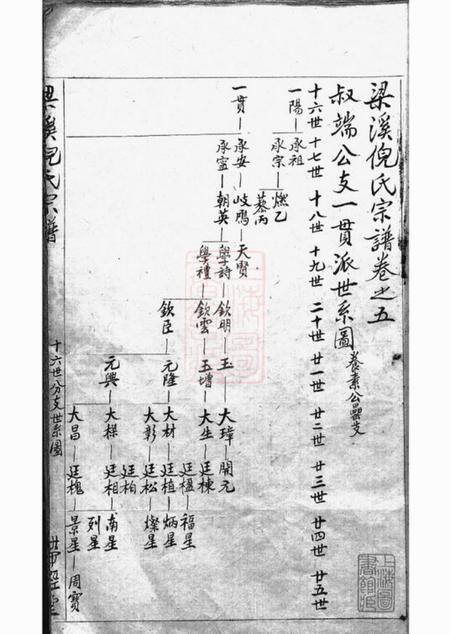 梁溪倪氏宗譜卷之五
叔端公支一貫派世系圖 養素公㽞支
十六世 十七世 十八世 十九世 二十世 廿一世 廿二世 廿三世 廿四世 廿五世
一陽 承祖
承宗 燃乙
藜丙
一貫 承安 岐鵬 天賢
承宣 朝英 學詩 欽明 玉 大璋 開元
學禮 欽雲 玉增 大生 廷棟
廷楹 福星
欽臣 元隆 大材 廷植 炳星
大彰 廷松 燦星
廷柏
元興 大檏 廷相 南星
列星
大昌 廷槐 景星 周寶
梁溪倪氏宗譜
十六世分支世系圖
上海圖書館藏